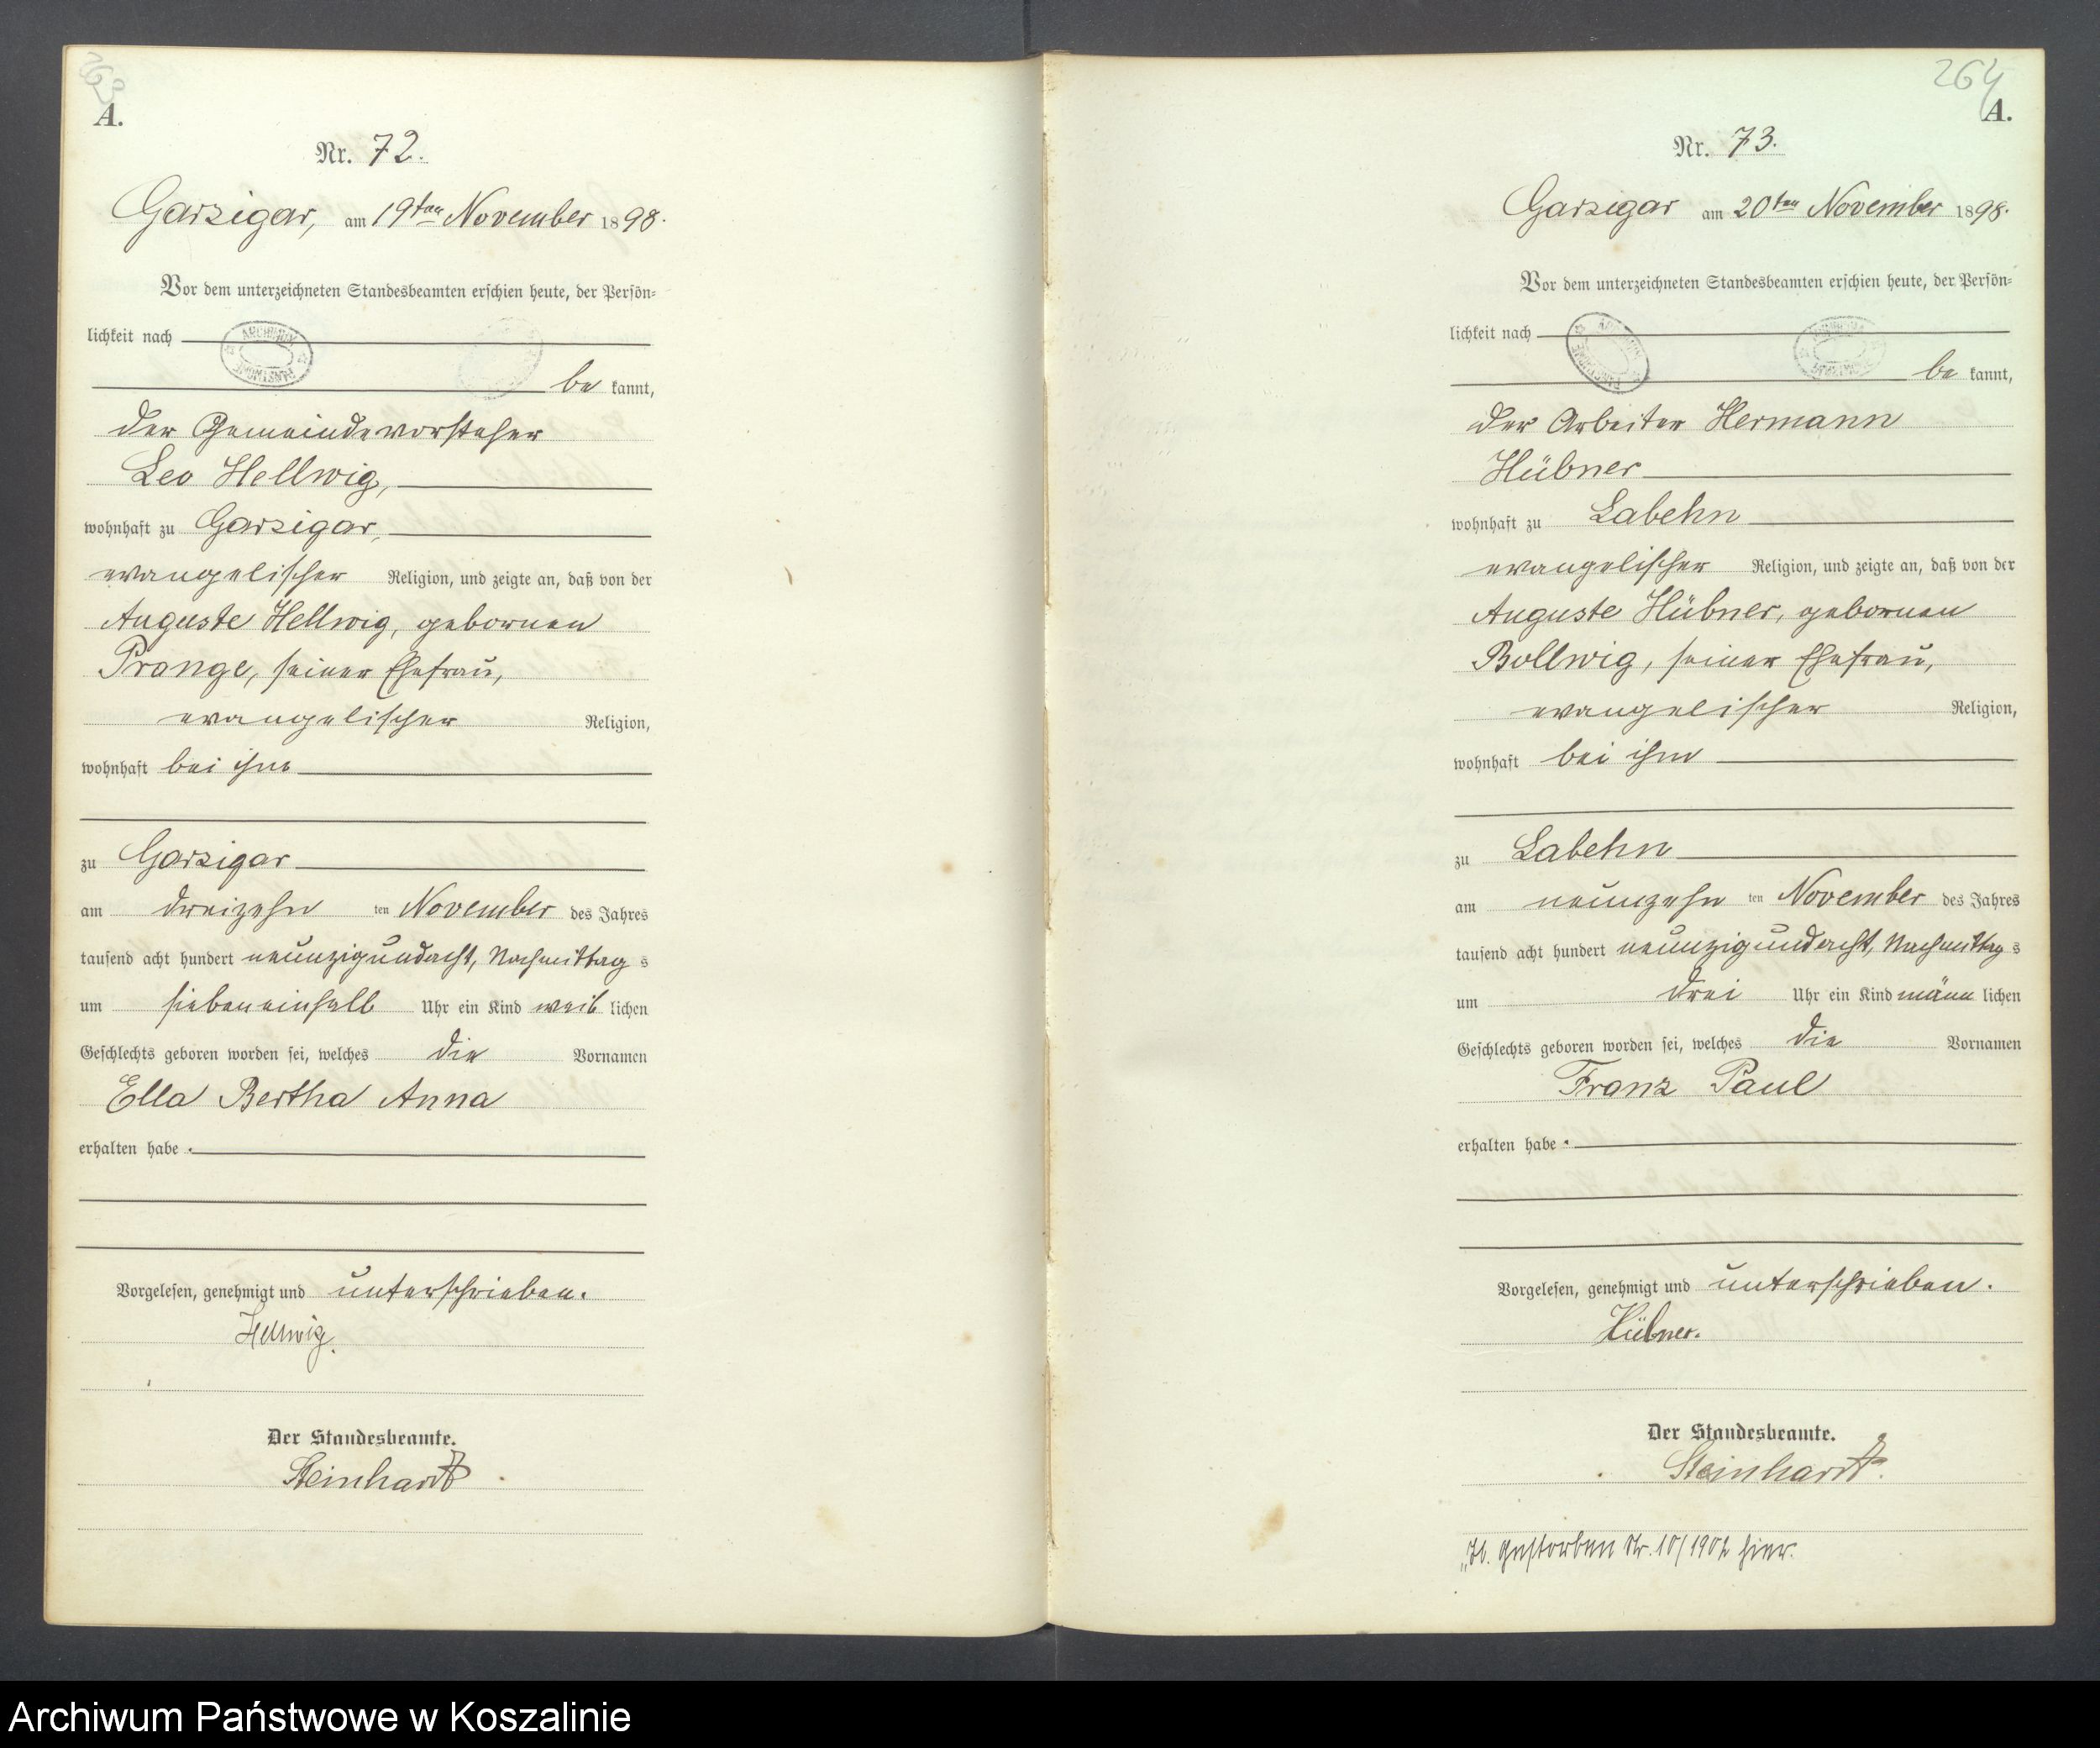 263
A.
Nr. 72.
Garzigar, am 19ten November 1898.
Vor dem unterzeichneten Standesbeamten erschien heute, der Persön=
lichkeit nach
ARCHIWUM PAŃSTWOWE
be kannt,
der Gemeindevorsteher
Leo Hellwig,
wohnhaft zu Garzigar,
evangelischer Religion, und zeigte an, daß von der
Auguste Hellwig, gebornen
Prange, seiner Ehefrau,
evangelischer Religion,
wohnhaft bei ihm
zu Garzigar
am dreizehn ten November des Jahres
tausend acht hundert neunzigundacht, Nachmittag s
um siebeneinhalb Uhr ein Kind weib lichen
Geschlechts geboren worden sei, welches die Vornamen
Ella Bertha Anna
erhalten habe.
Vorgelesen, genehmigt und unterschrieben.
Hellwig.
Der Standesbeamte.
Steinhardt
264
A.
Nr. 73.
Garzigar am 20ten November 1898.
Vor dem unterzeichneten Standesbeamten erschien heute, der Persön=
lichkeit nach
be kannt,
der Arbeiter Hermann
Hübner
wohnhaft zu Labehn
evangelischer Religion, und zeigte an, daß von der
Auguste Hübner, gebornen
Bollwig, seiner Ehefrau,
evangelischer Religion,
wohnhaft bei ihm
zu Labehn
am neunzehn ten November des Jahres
tausend acht hundert neunzigundacht, Nachmittag s
um drei Uhr ein Kind männ lichen
Geschlechts geboren worden sei, welches die Vornamen
Franz Paul
erhalten habe.
Vorgelesen, genehmigt und unterschrieben.
Hübner.
Der Standesbeamte.
Steinhardt.
gestorben Nr. 10/1902 hier.
Archiwum Państwowe w Koszalinie